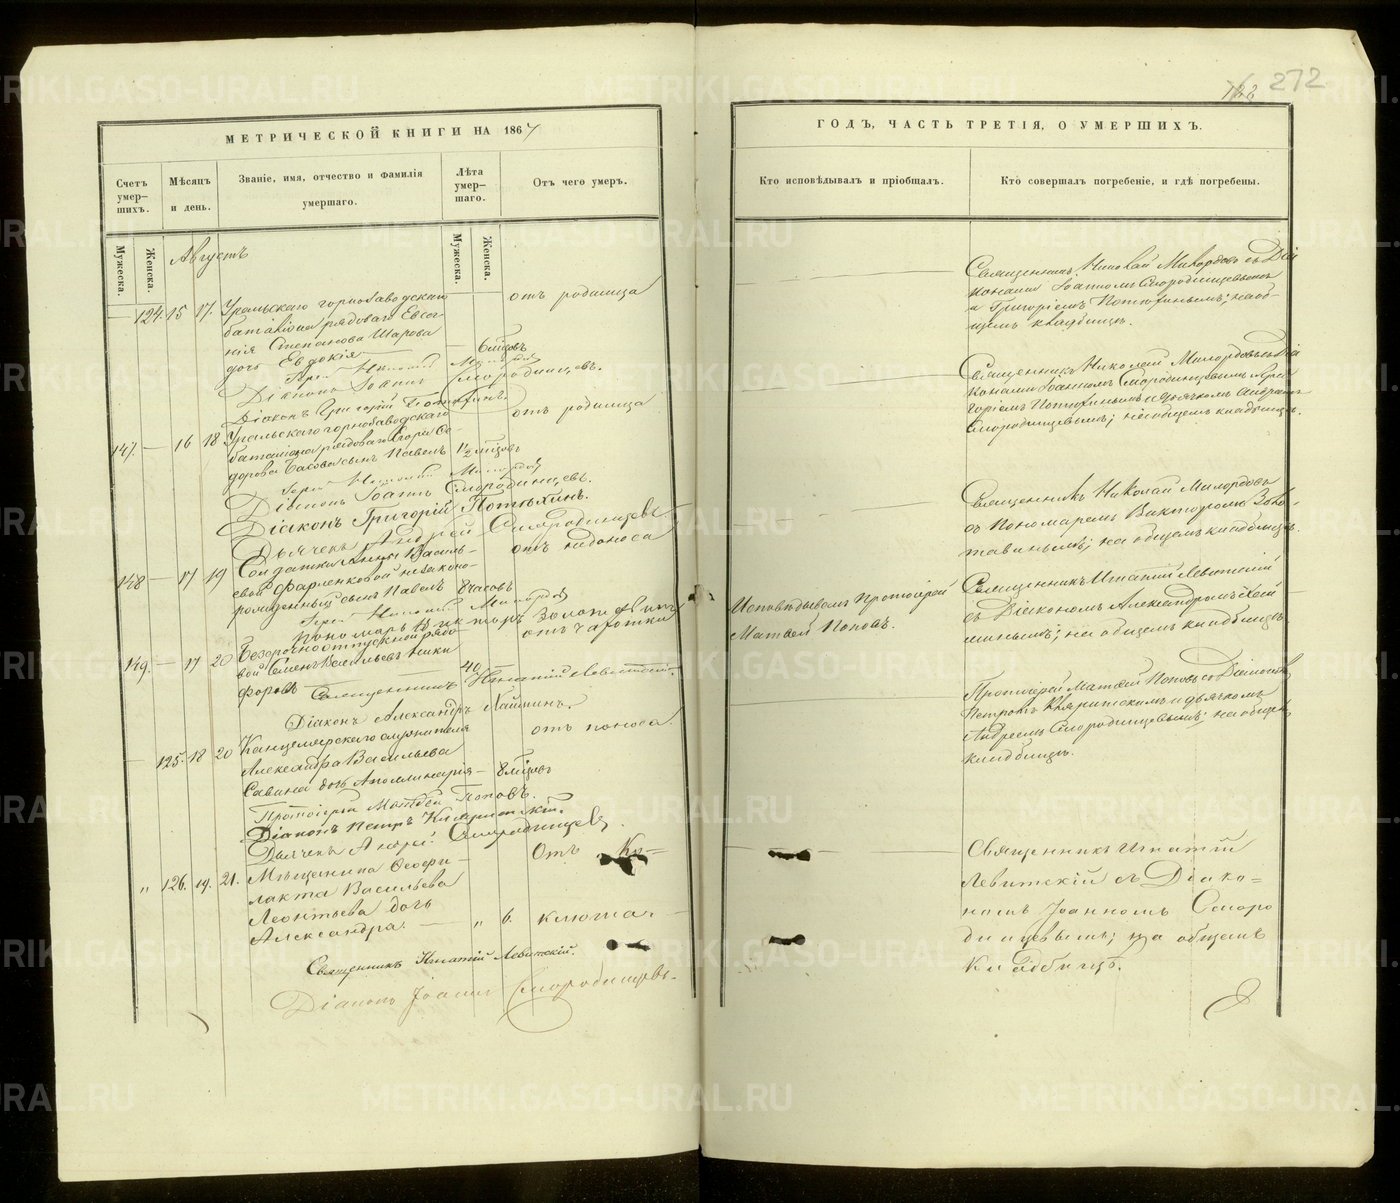 272
МЕТРИЧЕСКОЙ КНИГИ НА 1867
Счетъ умерших.
Мѣсяцъ и день.
Званіе, имя, отчество и фамилія умершаго.
Лѣта умершаго.
Отъ чего умеръ.
Мужеска.
Женска.
Мужеска.
Женска.
Августъ
124. 15 17. Уральскаго горнозаводскаго
баталіона рядоваго Евсе-
нія Степанова Шарова
дочь Евдокія — 6 мѣсцовъ
отъ родимца
Діаконъ Іоаннъ Смородинцевъ.
Діаконъ Григорій Потѣхинъ.
147. — 16 18 Уральскаго горнозаводскаго
баталіона рядоваго Егора Ѳе-
дорова Басова сынъ Павелъ 1½ мѣсцовъ
отъ родимца
Діаконъ Іоаннъ Смородинцевъ.
Діаконъ Григорій Потѣхинъ.
Дьячекъ Андрей Смородинцевъ
148 — 17 19 Солдатки Анны Василь-
евой Фарленковой незаконо-
рожденный сынъ Павелъ 8 часовъ
отъ недоноса
Пономарь Викторъ
149. — 17 20 Безсрочноотпускной рядо-
вой Семенъ Васильевъ Ники-
форовъ 40
отъ чахотки
Священникъ Игнатій Левитскій.
Діаконъ Александръ
125. 18 20 Канцелярскаго служителя
Александра Васильева
Савина дочь Аполлинарія — 8 мѣсцовъ
отъ поноса
Протоіерей Матѳей Поповъ.
Діаконъ Петръ
Дьячекъ Андрей Смородинцевъ.
„ 126. 19. 21. Мѣщанина Ѳеофи-
лакта Васильева
Леонтьева дочь
Александра. — „ 6.
Отъ Ко=
клюша.
Священникъ Игнатій Левитскій.
Діаконъ Іоаннъ Смородинцевъ.
ГОДЪ, ЧАСТЬ ТРЕТІЯ, О УМЕРШИХЪ.
Кто исповѣдывалъ и пріобщалъ.
Кто совершалъ погребеніе, и гдѣ погребены.
Священникъ Николай Милордовъ съ Діа
конами Іоанномъ Смородинцевымъ
и Григоріемъ Потѣхинымъ; на об-
щемъ кладбищѣ.
Священникъ Николай Милордовъ съ Діа
конами Іоанномъ Смородинцевымъ, Гри
горіемъ Потѣхинымъ и дьячкомъ Андреемъ
Смородинцевымъ; на общемъ кладбищѣ.
Священникъ Николай Милордовъ
съ Пономаремъ Викторомъ Золо-
тавинымъ; на общемъ кладбищѣ.
Исповѣдывалъ Протоіерей
Матѳей Поповъ.
Священникъ Игнатій Левитскій
съ Діакономъ Александромъ
на общемъ кладбищѣ.
Протоіерей Матѳей Поповъ съ Діакономъ
Петромъ и дьячкомъ
Андреемъ Смородинцевымъ; на общемъ
кладбищѣ.
Священникъ Игнатій
Левитскій съ Діако=
номъ Іоанномъ Сморо
динцевымъ; на общемъ
кладбищѣ.
METRIKI.GASO-URAL.RU